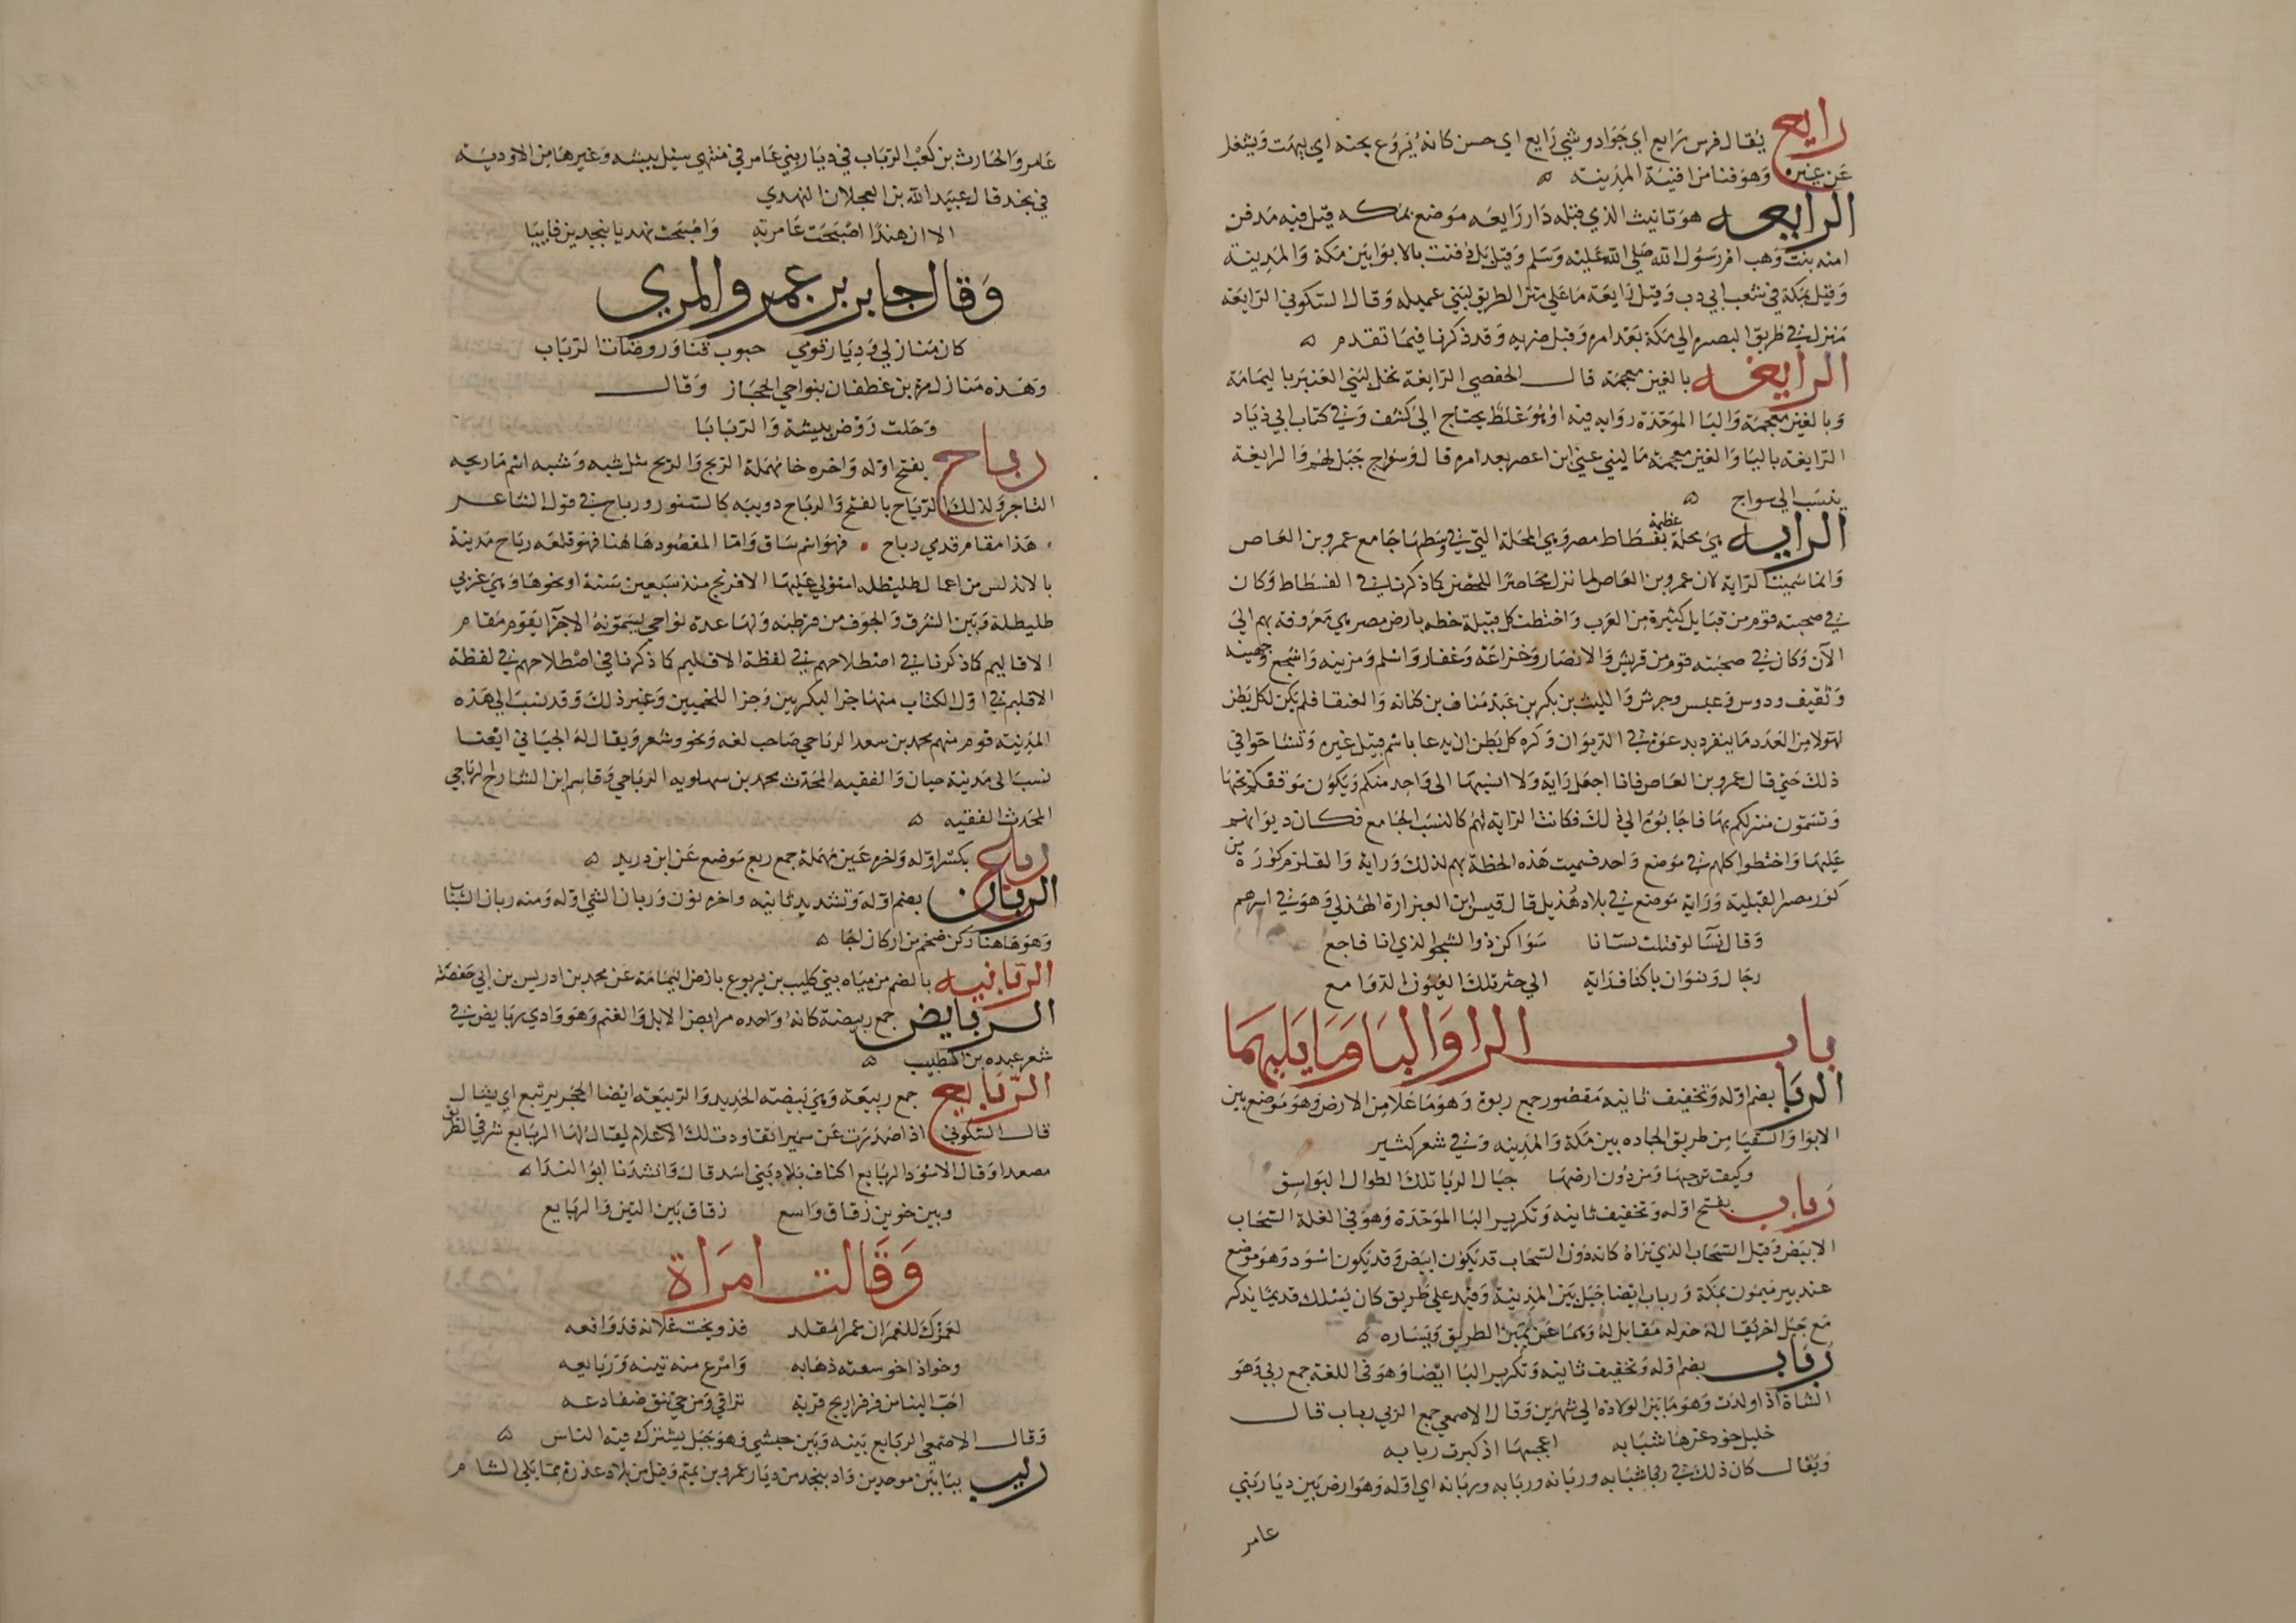 رايع يقال فرس رايع اي جواد وشي رايع اي حسن كانه يروع بحسنه اي يبهت ويشغل
عن غيره وهو فنا من افنية المدينة ه
الرايعه هو تانيث الذي قبله دار رايعه موضع بمكه قيل فيه مدفن
امنه بنت وهب ام رسول الله صلي الله عليه وسلم وقيل بل دفنت بالابوا بين مكة والمدينة
وقيل بمكة في شعب ابي دب وقيل رايعة ما علي متن الطريق لبني عميله وقال السكوني الرايعة
منزل في طريق البصره الي مكة بعد امره وقبل ضريه وقد ذكرنا فيما تقدم ه
الرايغه بالغين معجمة قال الحفصي الرايغة نخل لبني العنبر باليمامة
وبالغين معجمة والبا الموحدة روايه فيه او هو غلط يحتاج الي كشف وفي كتاب ابي زياد
الرايغة باليا والغين معجمة ما لبني غني ابن اعصر بعد امره قال وسواج جبل لهم والرايغة
ينسب الي سواج ه
الرايه هي محلة عظيمة بفسطاط مصر وهي المحلة التي في وسطها جامع عمرو بن العاص
وانما سميت الراية لان عمرو بن العاص لما نزل محاصرا للحصن كما ذكرناه في الفسطاط وكان
في صحبته قوم من قبايل كثيرة من العرب واختطت كل قبيلة خطه بارض مصر هي معروفة بهم الي
الآن وكان في صحبته قوم من قريش والانصار وخزاعة وغفار واسلم ومزينه واشجع وجهينه
وثقيف ودوس وعبس وجرش والليث بن بكر بن عبد مناف بن كنانه والعتقا فلم يكن لكل بطن
لهولا من العدد ما ينفرد بدعوة في الديوان وكره كل بطن ان يدعا باسم قبيل غيره وتشاحوا في
ذلك حتي قال عمرو بن العاص فانا اجعل راية ولا انسبها الي واحد منكم ويكون موقفكم تحتها
وتسمون منزلكم بها فاجابوه الي ذلك فكانت الراية لهم كالنسب الجامع فكان ديوانهم
عليها واختطوا كلهم في موضع واحد فسميت هذه الخطة بهم لذلك وراية والقلزم كورة من
كور مصر القبلية وراية موضع في بلاد هذيل قال قيس ابن العيزارة الهذلي وهو في اسرهم
وقال نسا لو قتلت نسانا سواكن ذو الشجو الذي انا فاجع
رجال ونسوان باكناف راية الي حثن تلك العيون الدوامع
باب الرا والبا وما يليهما
الربا بضم اوله وتخفيف ثانيه مقصور جمع ربوة وهو ما علا من الارض وهو موضع بين
الابوا والسقيا من طريق الجاده بين مكة والمدينه وفي شعر كثير
وكيف ترجيها ومن دون ارضها جبال الربا تلك الطوال البواسق
رباب بفتح اوله وتخفيف ثانيه وتكرير البا الموحدة وهو في الغلة السحاب
الابيض وقيل السحاب الذي تراه كانه دون السحاب قد يكون ابيض وقد يكون اسود وهو موضع
عند بير ميمون بمكة ورباب ايضا جبل بين المدينة وفيد علي طريق كان يسلك قديما يذكر
مع جبل اخر يقال له خوله مقابل له وهما عن يمين الطريق ويساره ه
رباب بضم اوله وتخفيف ثانيه وتكرير البا ايضا وهو في اللغة جمع ربي وهو
الشاة اذا ولدت وهو ما بين الولادة الي شهرين وقال الاصمعي جمع الربي رباب قال
خليل خود غرها شبابه اعجبها اذ كبرت ربابه
ويقال كان ذلك في ربا شبابه وربانه وربابه وربانه اي اوله وهو ارض بين ديار بني
عامر
عامر والحارث بن كعب الرباب في ديار بني عامر في منتهي سيل بيشه وغيرها من الاودية
في نجد قال عبيد الله بن العجلان النهدي
الا ان هندا اصبحت عامرية واصبحت نهديا بنجدين نابيا
وقال جابر بن عمرو المري
كان منازلي وديار قومي جبوب قنا وروضات الرباب
وهذه منازل مرة بن غطفان بنواحي الحجاز وقال
وحلت روض بيشة والربابا
رباح بفتح اوله واخره حا مهملة الربح والربح مثل شبه وشبه اسم ما ربحه
التاجر وكذلك الرباح بالفتح والرباح دويبه كالسنور ورباح في قول الشاعر
هذا مقام قدمي رباح فهو اسم ساق واما المقصود هاهنا فهو قلعه رباح مدينة
بالاندلس من اعمال طليطله استولي عليها الافرنج منذ سبعين سنة او نحوها وهي غربي
طليطلة وبين الشرق والجوف من قرطبه ولها عدة نواحي يسمونه الاجزا يقوم مقام
الاقاليم كما ذكرنا في اصطلاحهم في لفظة الاقليم كما ذكرنا في اصطلاحهم في لفظة
الاقليم في اول الكتاب منها جزا البكريين وجزا اللخميين وغير ذلك وقد نسب الي هذه
المدينه قوم منهم محمد بن سعد الرباحي صاحب لغه ونحو وشعر ويقال له الجياني ايضا
نسب الي مدينة جيان والفقيه المحدث محمد بن سهلويه الرباحي وقاسم ابن الشارح الرباحي
المحدث الفقيه ه
رباع بكسر اوله واخره عين مهملة جمع ربع موضع عن ابن دريد ه
الربان بضم اوله وتشديد ثانيه واخره نون وربان الشي اوله ومنه ربان الشباب
وهو هاهنا ركن ضخم من اركان اجا ه
الربانيه بالضم من مياه بني كليب بن يربوع بارض اليمامة عن محمد بن ادريس بن ابي حفصة
الربايض جمع ربيضة كانه واحده مرابض الابل والغنم وهو وادي ربايض في
شعر عبده بن الطبيب ه
الربايع جمع ربيعة وهي بيضة الحديد والربيعة ايضا الحجر يرتبع اي يشال
قال السكوني اذا صدرت عن سميرا تقاودت لك الاعلام يقال لها الربايع شرقي الطريق
مصعدا وقال الاسود الربايع اكناف بلاد بني اسد قال وانشدنا ابو الندا ه
وبين خوين زقاق واسع زقاق بين التين والربايع
وقالت امراة
لعمرك للغمران غمرا مقلد فذو نجت غلانه فدوافعه
وخو اذا خو سقته ذهابه وامرع منه تينه وربايعه
احب الينا من فراريج قرية تزاقي ومن حي تنق ضفادعه
وقال الاصمعي الربايع بينه وبين حبشي وهو جبل يشترك فيه الناس ه
ربب ببابين موحدين واد بنجد من ديار عمرو بن تميم وقيل من بلاد عذرة مما يلي الشام